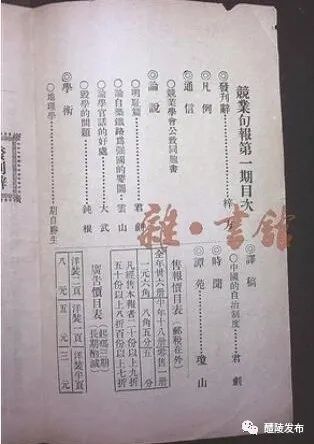 競業旬報第一期目次
◎發刊辭 梓方
◎凡例
◎通信
○競業學會公致同胞書
◎論說
○明恥篇 君劍
○論自築鐵路爲强國的要圖 雲山
○論學官話的好處 大武
○毀學的問題 鈍根
◎學術
○地理學
◎譯稿
○中國的自治制度 君劍
◎時聞
◎譚苑 瓊山
售報價目表 (郵稅在外)
全年卅六册 半年十八册 零售一册
一元六角 八角五分 五分
凡經售本報者二十份以上九折
五十份以上八折百份以上七折
廣告價目表 (起碼三期 長期酌減)
洋裝二頁 洋裝一頁 洋裝半頁
八元 五元 三元
發刊辭
雜·書館
醴陵发布